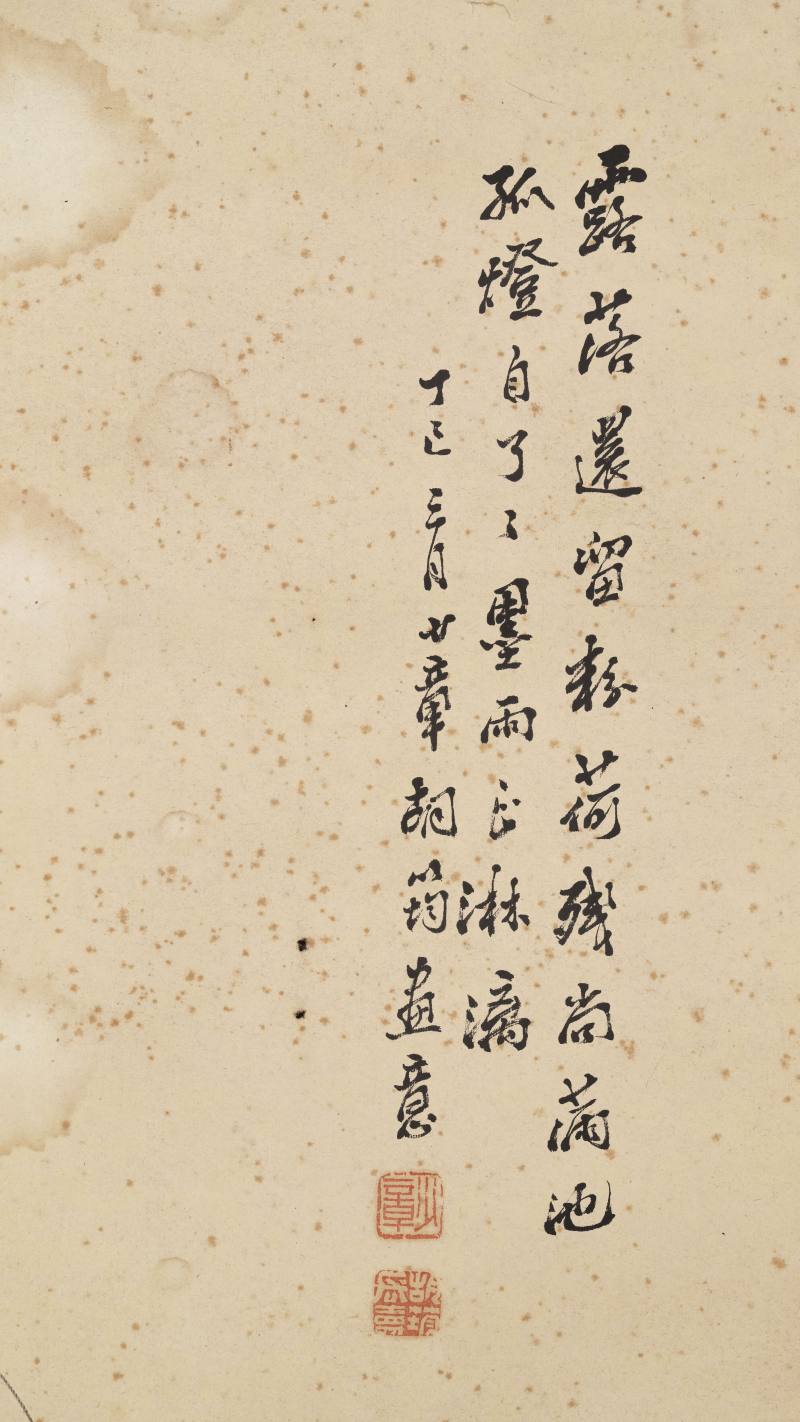 露落還留粉荷殘尚滿池
孤燈自了了墨雨正淋漓
丁巳三月廿章胡筠畫意